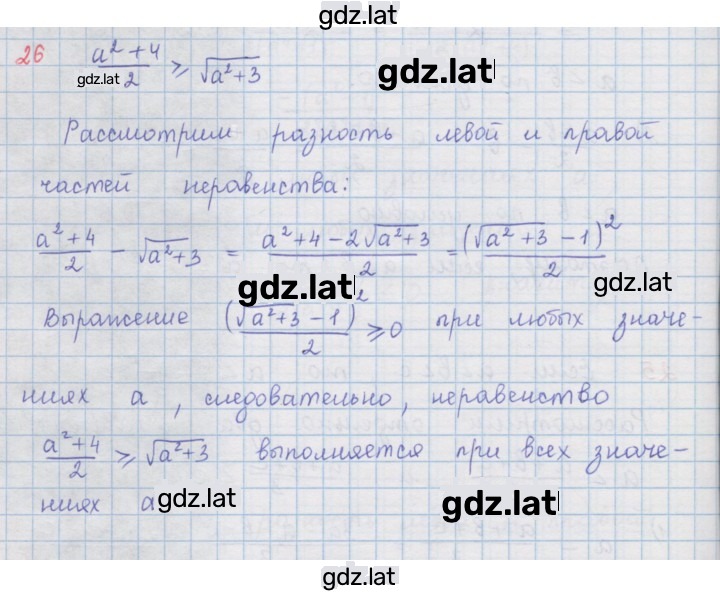 gdz.lat
26 (a² + 4)/2 ⩾ √(a² + 3)
gdz.lat
gdz.lat
Рассмотрим разность левой и правой
частей неравенства:
(a² + 4)/2 − √(a² + 3) = (a² + 4 − 2√(a² + 3))/2 = (√(a² + 3) − 1)²/2
gdz.lat
gdz.lat
Выражение (√(a² + 3) − 1)²/2 ⩾ 0 при любых значе-
ниях a, следовательно, неравенство
(a² + 4)/2 ⩾ √(a² + 3) выполняется при всех значе-
ниях a
gdz.lat
gdz.lat
gdz.lat